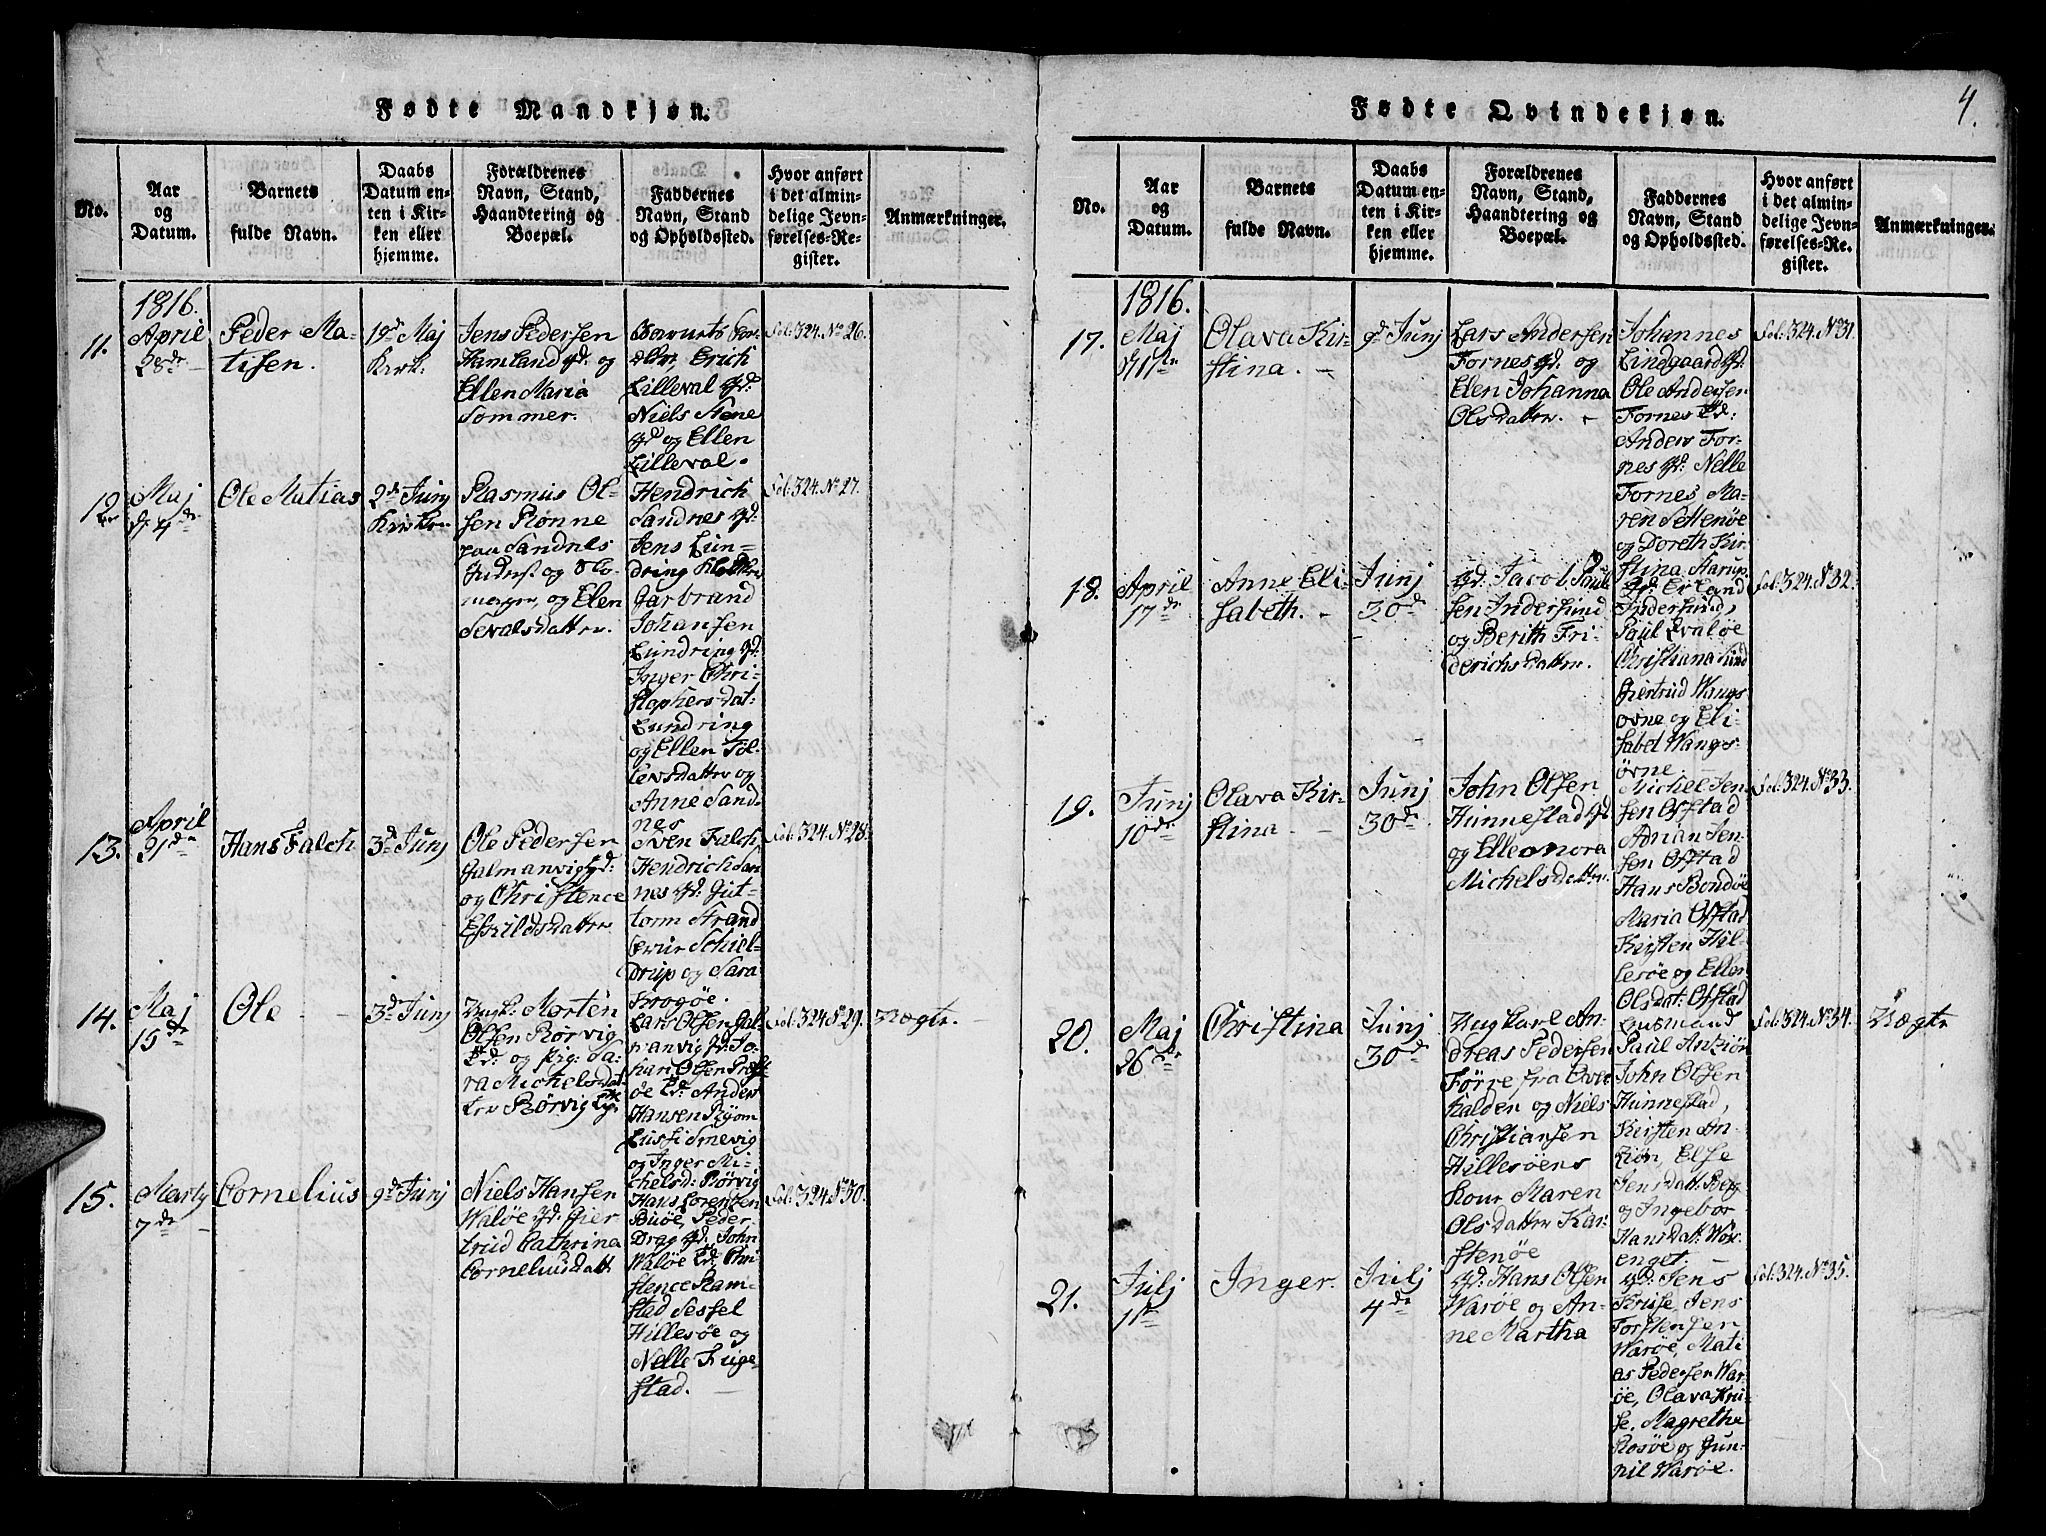 Fødte Mandkjøn.
No.
Aar
og
Datum.
Barnets
fulde Navn.
Daabs
Datum en-
ten i Kir-
ken eller
hjemme.
Forældrenes
Navn, Stand,
Haandtering og
Boepæl.
Faddernes
Navn, Stand
og Opholdssted.
Hvor anført
i det almin-
delige Jevn-
førelses-Re-
gister.
Anmærkninger.
1816.
11.
April
28de
Peder Ma-
tisen.
19de Maj
Kirk.
Jens Pedersen
Hamland gd: og
Ellen Maria
Sommer.
Erich
Lilleval gd:
Niels Stene
gd og Ellen
Lilleval.
Fol: 324. No 26.
12
Maj
Ole Matias
2de Junj
Rasmus Ol-
sen Rønne
paa Sandnes
og Elen
Sevalsdatter.
Hendrich
Sandnes gd:
Jens Lun-
dring
Garbrand
Johansen
Lundring gd:
Inger Chri-
stophersdat:
Lundring
og Ellen Tol-
levsdatter og
Anne Sand-
nes
Fol: 324. No 27.
13.
April
21de
Hans Falch
3de Junj
Ole Pedersen
Galmanvig gd:
og Christence
Eskildsdatter
Sven Falch,
Hendrich San-
nes gd: Gut-
torm Strand
Schiel-
drup og Sara
Krogøe.
Fol: 324. No 28.
14.
Maj
15de
Ole
3de Junj
Morten
Olsen Rørvig
og pig: Sa-
ra Michelsdat-
ter Rørvig
Lars Olsen Gal-
manvig gd: Jo-
han Olsen
øe Anders
Hansen Ryøm
og Inger Mi-
chelsd: Rørvig
Fol: 324 No 29.
Uægte.
15.
Marty
7de
Cornelius
9de Junj
Niels Hansen
Waløe gd: Gier
trud Cathrina
Corneliusdatt
Hans Lorentzen
Buøe, Peder
Drag gd: John
Waløe Chri-
stence Ram-
stad Sessel
Hillesøe og
Nelle Fuge-
stad.
Fol: 324. No 30.
4.
Fødte Qvindekjøn.
No.
Aar
og
Datum.
Barnets
fulde Navn.
Daabs
Datum en-
ten i Kir-
ken eller
hjemme.
Forældrenes
Navn, Stand,
Haandtering og
Boepæl.
Faddernes
Navn, Stand
og Opholdssted.
Hvor anført
i det almin-
delige Jevn-
førelses-Re-
gister.
Anmærkninger.
1816.
17.
Maj
Olava Kir-
stina.
9de Junj
Lars Andersen
Fornes gd: og
Elen Johanna
Olsdatter.
Johannes
Lindgaard gd:
Ole Andersen
Fornes
Anders For-
nes gd: Nelle
Fornes Ma-
ren Settenøe
og Doreth Kir-
stina Aarup
Fol: 324. No 31.
18.
April
17de
Anne Eli-
sabeth.
Junj
30de
gd: Jacob Paul
sen Indersund
og Berith Fri-
derichsdatter.
gd: Erland
Indersund,
Paul Evaløe
Christiana Sund
Giertrud Wangs-
ovne og Eli-
sabet Wangs-
øvne.
Fol: 324. No 32.
19.
Junj
10de
Olava Kir-
stina.
Junj
30de
John Olsen
Hunnestad gd
og Elleonora
Michelsdatter.
Michel Jen-
sen Ofstad
Adrian Jen-
sen Ofstad
Hans Bondøe
Maria Ofstad
Kirsten Hil-
lesøe og Ellen
Olsdat: Ofstad
Fol: 324. No 33.
20.
Maj
26de
Christina
Junj
30de
Ungkarl An-
dreas Pedersen
Førre fra Over
halden og Niels
Christiansen
Hillesøens
Kone Maren
Olsdatter Kar-
stenøe
Huusmand
Paul Anziøn
John Olsen
Hunnestad,
Kirsten An-
ziøn, Else
Jensdatt: Berg
og Ingebor
Hansdatt: Wox-
enget.
Fol: 324. No 34.
Uægte
21.
Julj
1ste
Inger.
Julj
4de
gd: Hans Olsen
Warøe og An-
ne Martha
gd: Jens
Kruse, Jens
Torstensen
Warøe, Mati
as Pedersen War-
øe, Olava Kru-
se, Magrethe
Rosøe og Gun-
nil Warøe.
Fol: 324. No 35.